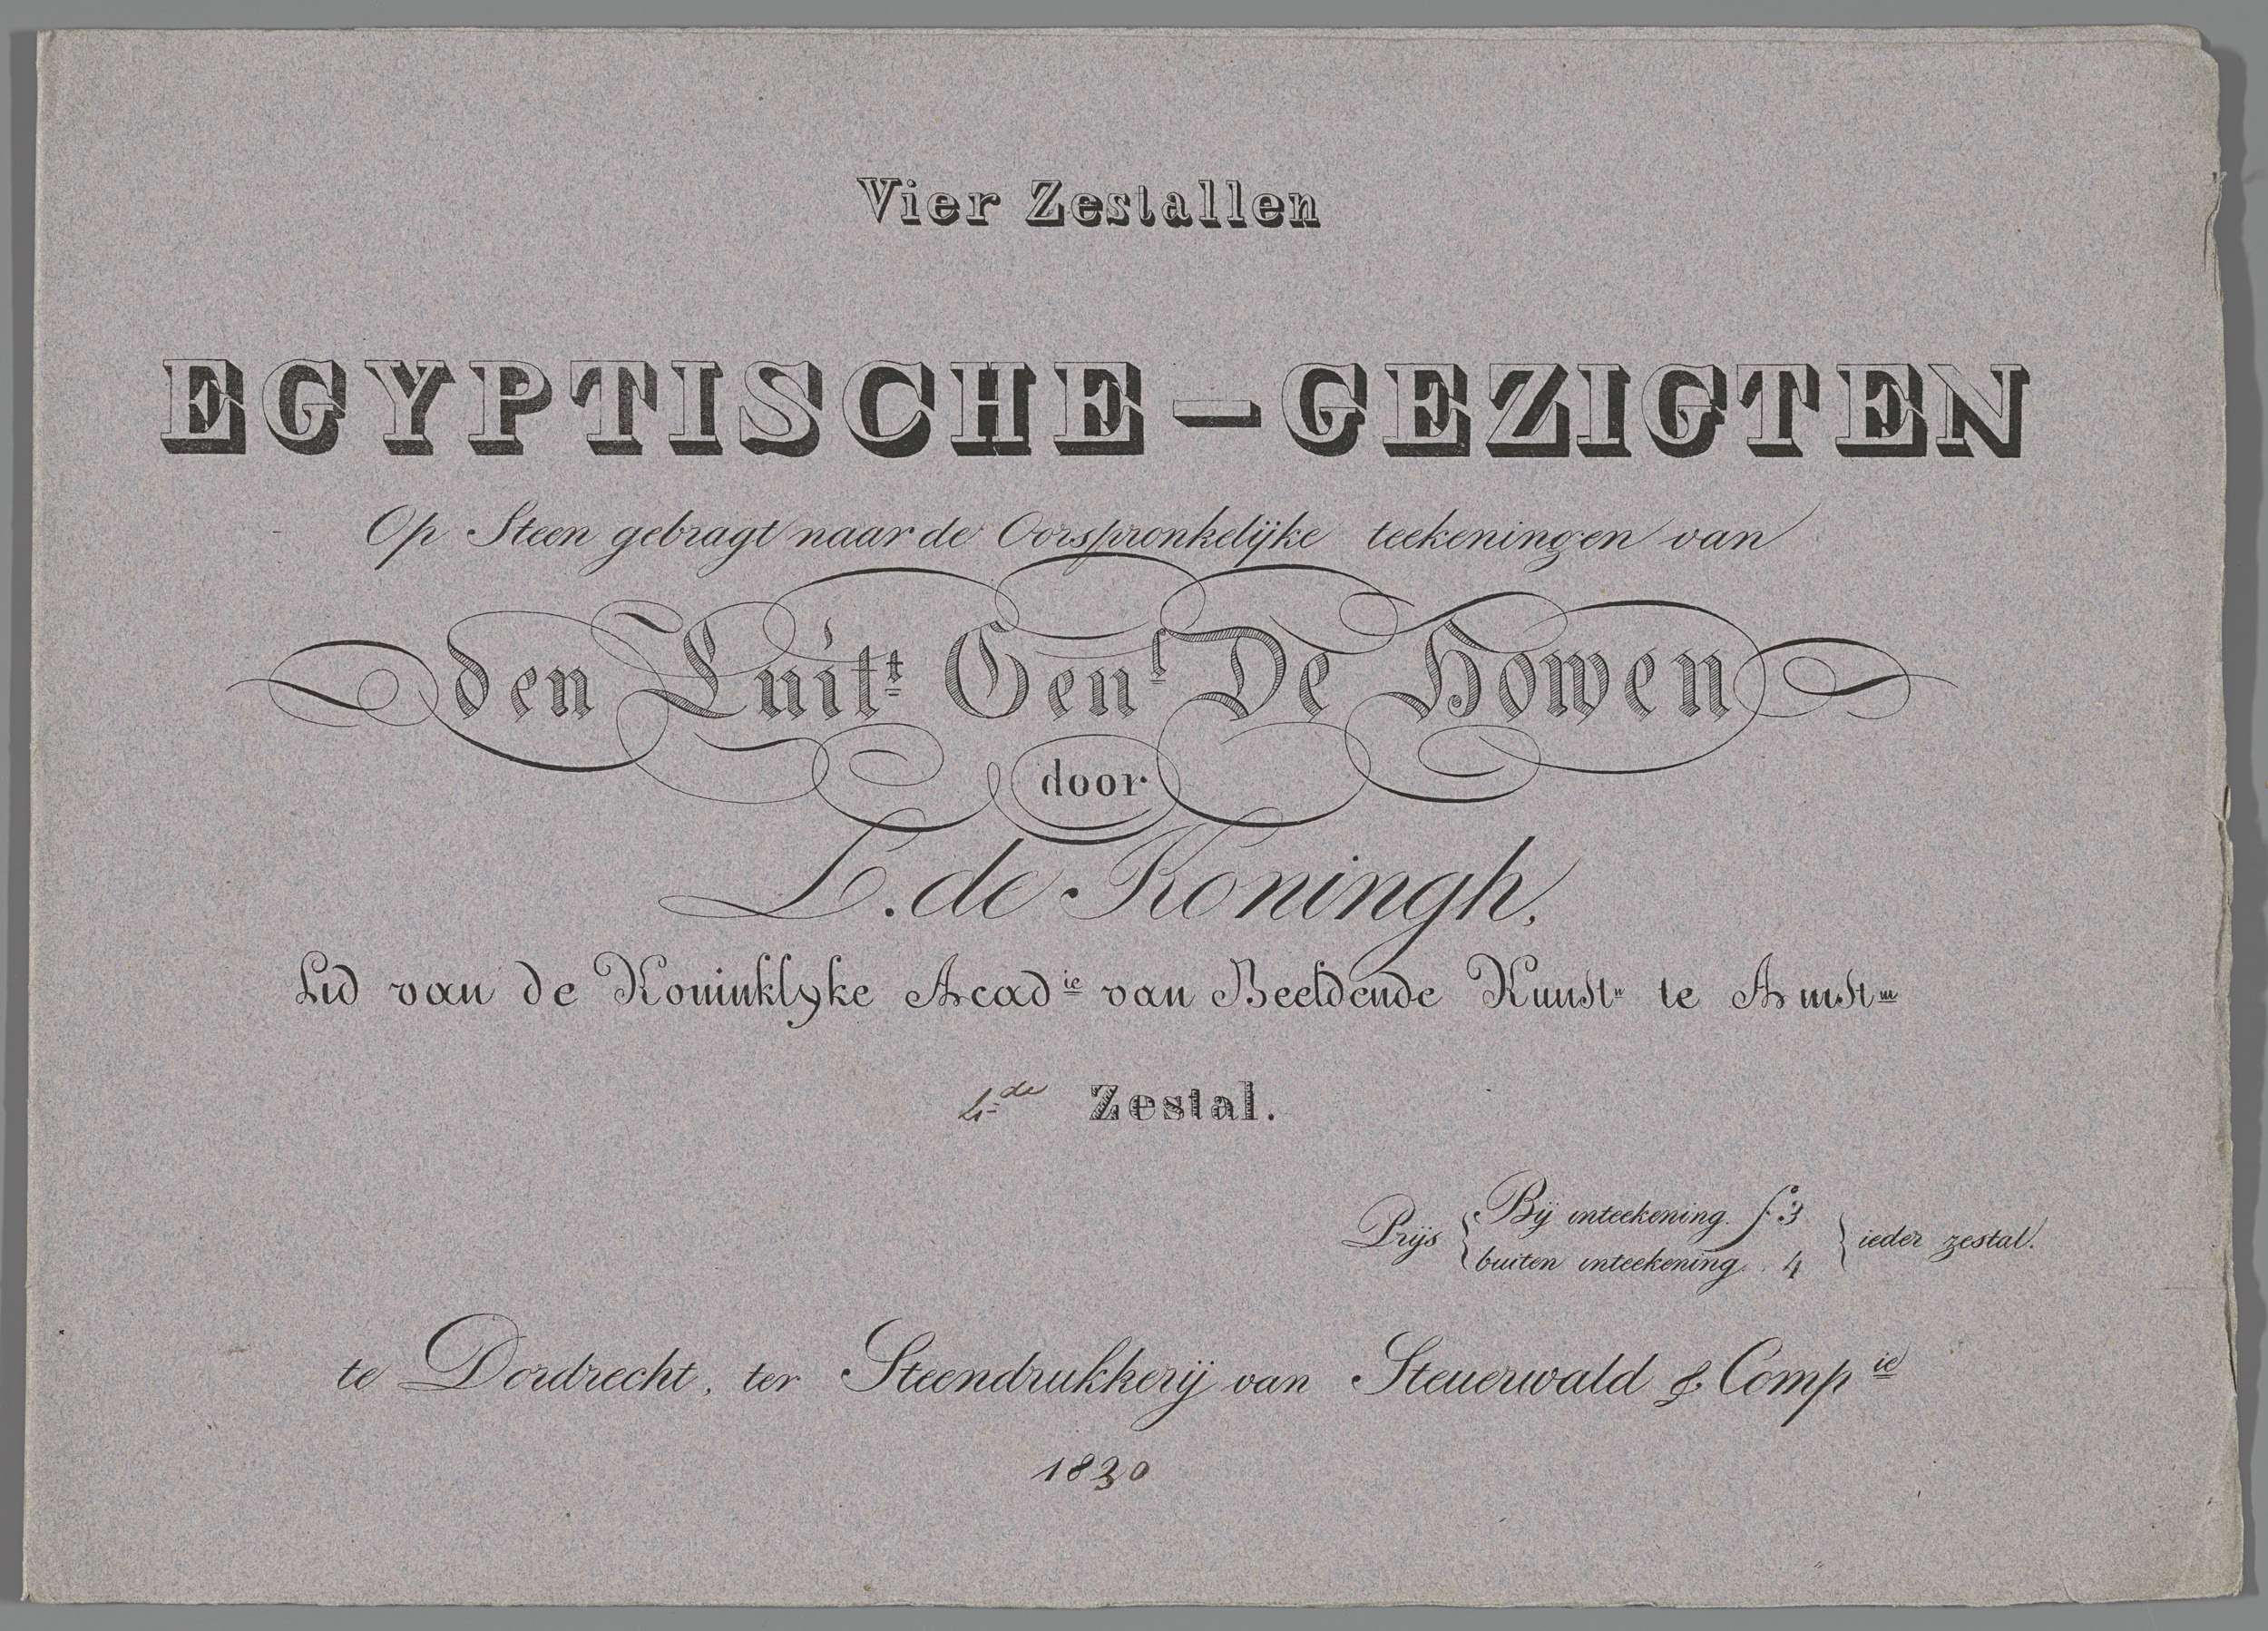 Vier Zestallen
EGYPTISCHE-GEZIGTEN
Op Steen gebragt naar de Oorspronkelijke teekeningen van
den Luitt Genl De Howen
door
L. de Koningh,
Lid van de Koninklyke Acadie van Beeldende Kunstn te Amstm
4de Zestal.
Prijs { Bij inteekening. f 3 } ieder zestal.
buiten inteekening. . 4
te Dordrecht, ter Steendrukkerij van Steuerwald & Compie
1830